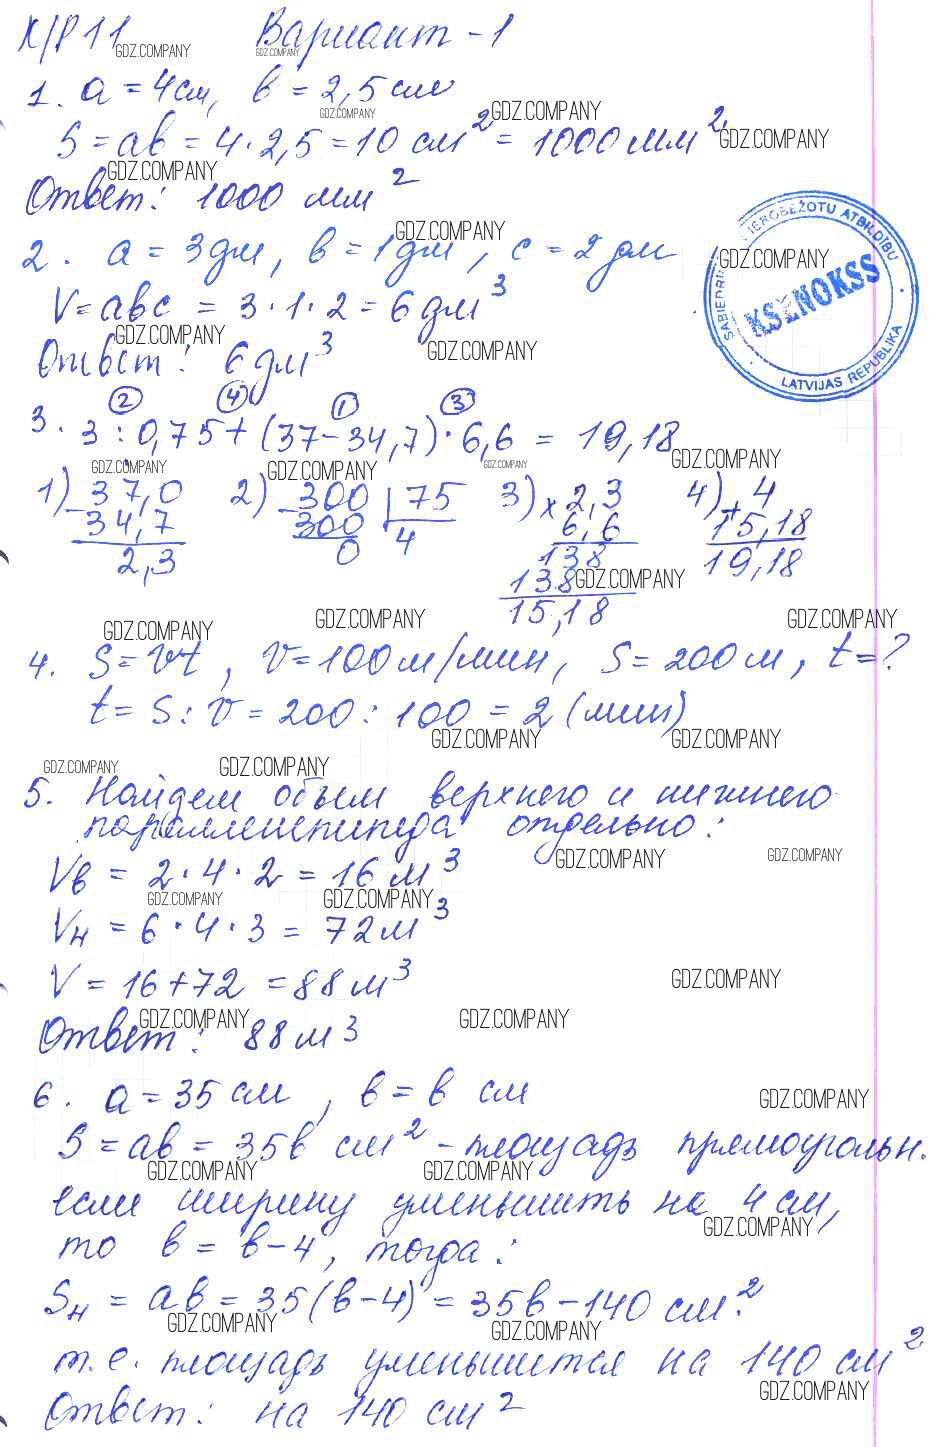 К/Р 11 Вариант - 1
1. a = 4 см, b = 2,5 см
S = ab = 4 · 2,5 = 10 см² = 1000 мм²
Ответ: 1000 мм²
2. a = 3 дм, b = 1 дм, c = 2 дм
V = abc = 3 · 1 · 2 = 6 дм³
Ответ: 6 дм³
② ④ ① ③
3. 3 : 0,75 + (37 - 34,7) · 6,6 = 19,18
1) 37,0 2) 300 | 75 3) × 2,3 4) + 4
- 34,7 - 300 4 6,6 15,18
2,3 0 138 19,18
138
15,18
4. S = vt, v = 100 м/мин, S = 200 м, t = ?
t = S : v = 200 : 100 = 2 (мин)
5. Найдем объем верхнего и нижнего
параллелепипеда отдельно:
Vв = 2 · 4 · 2 = 16 м³
Vн = 6 · 4 · 3 = 72 м³
V = 16 + 72 = 88 м³
Ответ: 88 м³
6. a = 35 см, b = b см
S = ab = 35b см² - площадь прямоугольн.
если ширину уменьшить на 4 см,
то b = b - 4, тогда:
Sн = ab = 35(b - 4) = 35b - 140 см²
т.е. площадь уменьшится на 140 см²
Ответ: на 140 см²
GDZ.COMPANY
KSENOKSS
LATVIJAS REPUBLIKA